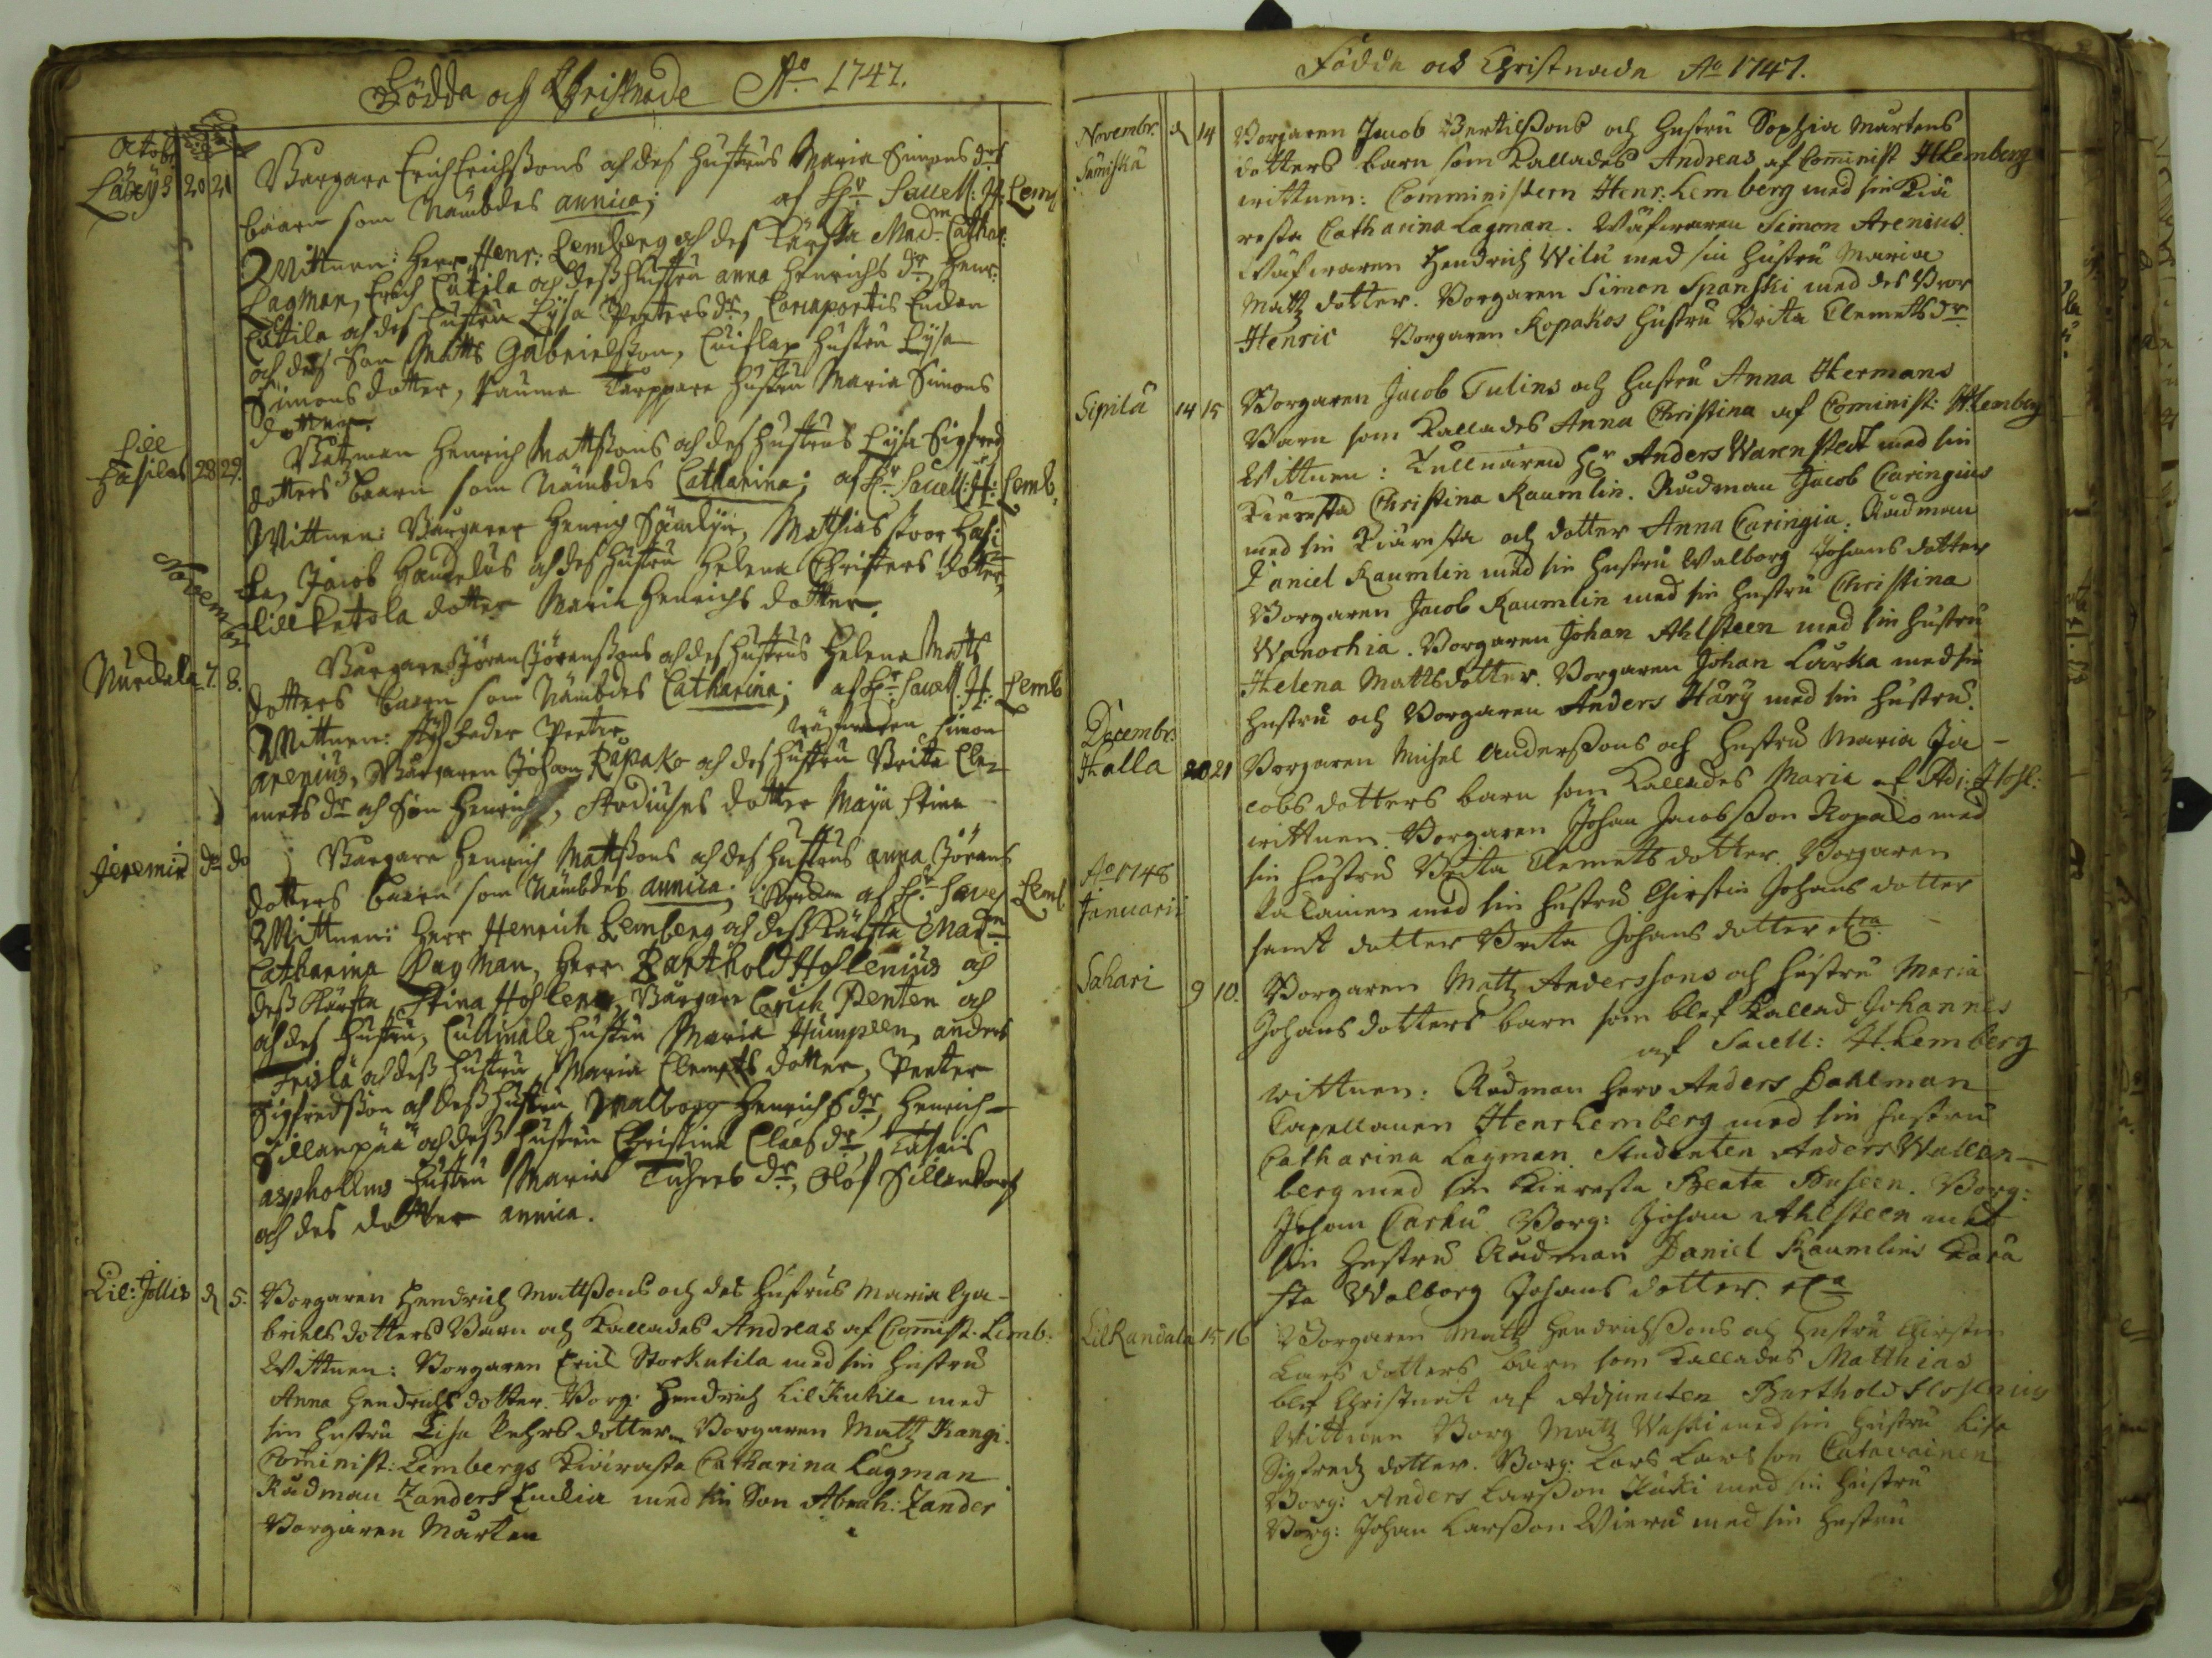 Födda och Christnade Ao 1747.
Octobr
Läxÿs 20 21 Borgare Erich Erichssons och des hustrus Maria Simons dr
baarn som Nämbdes annica; af Hr Sacell: H: Lemb
Wittnen: Herr Henr: Lemberg och des Kärsta Madm Cathar:
Lagman, Erich Cutila och dess hustru anna Henrichs dr, Henr:
Cutila och des hustru Lÿsa Peters dr, Enckan
och des Son Matts Gabrielsson, hustru Lÿsa
Simons dotter, Rauma Torppare hustru Maria Simons
dotter.
Lill
Hasilas 28 29. Båtzman Henrich Mattssons och des hustrus Lÿsa Sigfredz
dotters baarn som Nämbdes Catharina; af Hr Sacell: H: Lemb.
Wittnen: Borgarer Henrich Matthias stoor hasi
la, Jacob och des hustru Helena Christers dotter,
lill ketola dotter Maria Henrichs dotter.
Novemb
Nurdala 7. 8. Borgare Jöran Jöranssons och des hustrus Helena Matts
dotters baarn som Nämbdes Catharina; af Hr Sacell. H: Lemb
Wittnen: Peeter Wäfwaren Simon
arenius, Borgaren Johan Kapako och des hustru Britta Cle-
mets dr och Son Henrich, dotter Maÿa Stina
Jeremis do do Borgare Henrich Mattssons och des hustrus anna Jörans
dotters baarn som Nämbdes annica; af Hr Sacel Lemb.
Wittnen: Herr Henrich Lemberg och dess Kärsta Madm
Catharina Lagman, Herr Barthold Hoslenius och
dess Kärsta, Stina Hoslena Borgare Erich Penten och
och des hustru, hustru Maria Humpleen, anders
och dess hustru Maria Clemets dotter, Peeter
Sigfredsson och dess hustru Walborg Henrichs dr, Henrich
Sillanpää och dess hustru Christina Claes dr,
aspholms hustru Maria dr, Olof
och des dotter annica.
Lil: Jollis d 5. Borgaren Hendrich Mattssons och des hustrus Maria Ga-
briels dotters Barn och Kallades Andreas af Commist. Lemb.
Wittnen: Borgaren Erich Storkutila med sin hustru
Anna Hendrichs dotter. Borg: Hendrich Lil Kutila med
sin hustru Lisa Pehrs dotter. Borgaren Matz Kangi.
Cominist: Lembergs Kiärasta Catharina Lagman
Rådman Zanders Enckia med sin Son Abrah: Zander
Borgaren Mårten
Födde och Christnade Ao 1747.
Novembr. d 14 Borgaren Jacob Bertilssons och hustru Sophia Mårtens
Säniskä dotters barn som Kallades Andreas af Cominist H Lemberg
wittnen: Comministern Henr: Lemberg med sin Kiä
resta Catharina Lagman. Wäfwaren Simon Arenius.
Wäfwaren Hendrich Wilu med sin hustru Maria
Matz dotter. Borgaren Simon Spanski med des Bror
Henric Borgaren Kopakos hustru Brita Clemets dr
Sipilä 14 15 Borgaren Jacob Tulins och hustru Anna Hermans
Barn som Kallades Anna Christina af Cominist: H Lemberg
Wittnen: Tullnären Hr Anders Warenstedt med sin
Kieresta Christina Raumlin. Rådman Jacob Caringius
med sin Kiäresta och dotter Anna Caringia. Rådman
Daniel Raumlin med sin hustru Walborg Johans dotter
Borgaren Jacob Raumlin med sin hustru Christina
Wanochia. Borgaren Johan Ahlsteen med sin hustru
Helena Mattsdotter. Borgaren Johan Lurka med sin
hustru och Borgaren Anders Härÿ med sin hustru.
Decembr.
Halla 20 21 Borgaren Michel Anderssons och hustru Maria Ja-
cobs dotters barn som Kallades Maria af Adj: Hosl:
wittnen. Borgaren Johan Jacobsson Kopako med
sin hustru Brita Clemetts dotter. Borgaren
Ao 1748 med sin hustru Chirstin Johans dotter
Januarii samt dotter Brita Johans dotter etca.
Sahari 9 10. Borgaren Matz Anderssons och hustru Maria
Johans dotters barn som blef Kallad Johannes
af Sacell: H. Lemberg
wittnen: Rådman herr Anders Dahlman
Capellanen Henr Lemberg med sin hustru
Catharina Lagman. Studenten Anders Wallen-
berg med sin Kieresta Beata Buseen. Borg:
Johan Carku. Borg: Johan Ahlsteen med
sin hustru Rådman Daniel Raumlins Kära
sta Walborg Johans dotter. etca
Lil Randala 15 16 Borgaren Matz Hendrichssons och hustru Chirstin
Lars dotters barn som Kallades Matthias
blef Christnat af Adjuncten Barthold Hoslenius
Wittnen Borg Matz Waski med sin hustru Lisa
Sigfredz dotter. Borg: Lars Larsson Catavainen
Borg: Anders Larsson Kuki med sin hustru
Borg: Johan Larsson Wieru med sin hustru